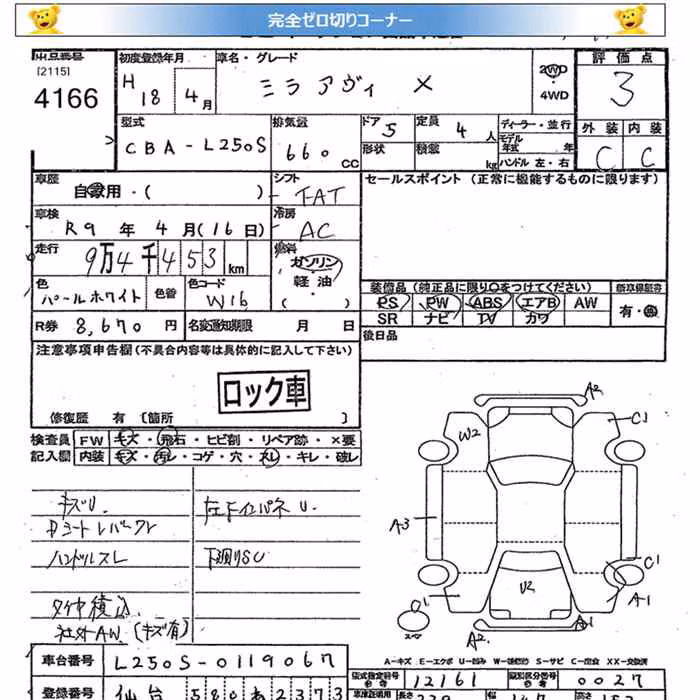 完全ゼロ切りコーナー
出品番号
[2115]
4166
初度登録年月
H 18 年 4 月
車名・グレード
ミラ アヴィ X
2WD
・
4WD
評価点
3
外装 内装
C C
型式
CBA-L250S
排気量
660 CC
ドア 5
形状
定員 4 人
積載 kg
ディーラー・並行
モデル年式 年
ハンドル 左・右
車歴
自家用・( )
シフト
FAT
セールスポイント (正常に機能するものに限ります)
車検
R9 年 4 月(16日)
冷房
AC
走行
9万4千453 km
燃料
ガソリン
・
軽油
・
( )
色
パールホワイト
色替
色コード
W16
R券 8,670 円
名変通知期限 月 日
装備品 (純正品に限り○をつけてください)
新車保証書
PS PW ABS エアB AW
有・無
SR ナビ TV カワ
後日品
注意事項申告欄(不具合内容等は具体的に記入して下さい)
ロック車
修復歴 有 [箇所 ]
検査員 FW キズ・飛石・ヒビ割・リペア跡・×要
記入欄 内装 キズ・汚レ・コゲ・穴・スレ・キレ・破レ
キズU.
左Fインパネ U.
Dシートレバークレ
ハンドルスレ
下廻りSU
タイヤ積込
社外AW (キズ有)
A2
C1
W2
A3
C1
U2
A1
C1
スペア
A2
A1
A-キズ E-エクボ U-凹み W-補修(跡) S-サビ C-腐食 XX-交換済
車台番号 L250S-0119067
型式指定番号 12161
類別区分番号 0027
登録番号 仙台 580 あ 2373
車庫証明用